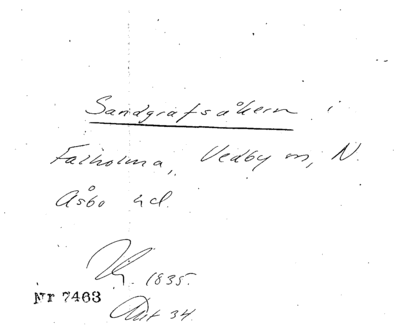 Sandgrafsåkern i
Falholma, Vedby sn, N.
Åsbo hd.
1835.
Nr 7463
Akt 34.